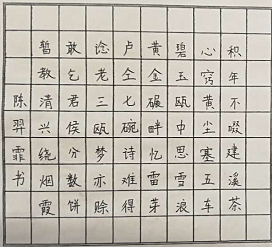 积年不啜建溪茶
心窍黄尘塞五车
碧玉瓯中思雪浪
黄金碾畔忆雷芽
卢仝七碗诗难得
谂老三瓯梦亦赊
敢乞君侯分数饼
暂教清兴绕烟霞
陈羿霏书